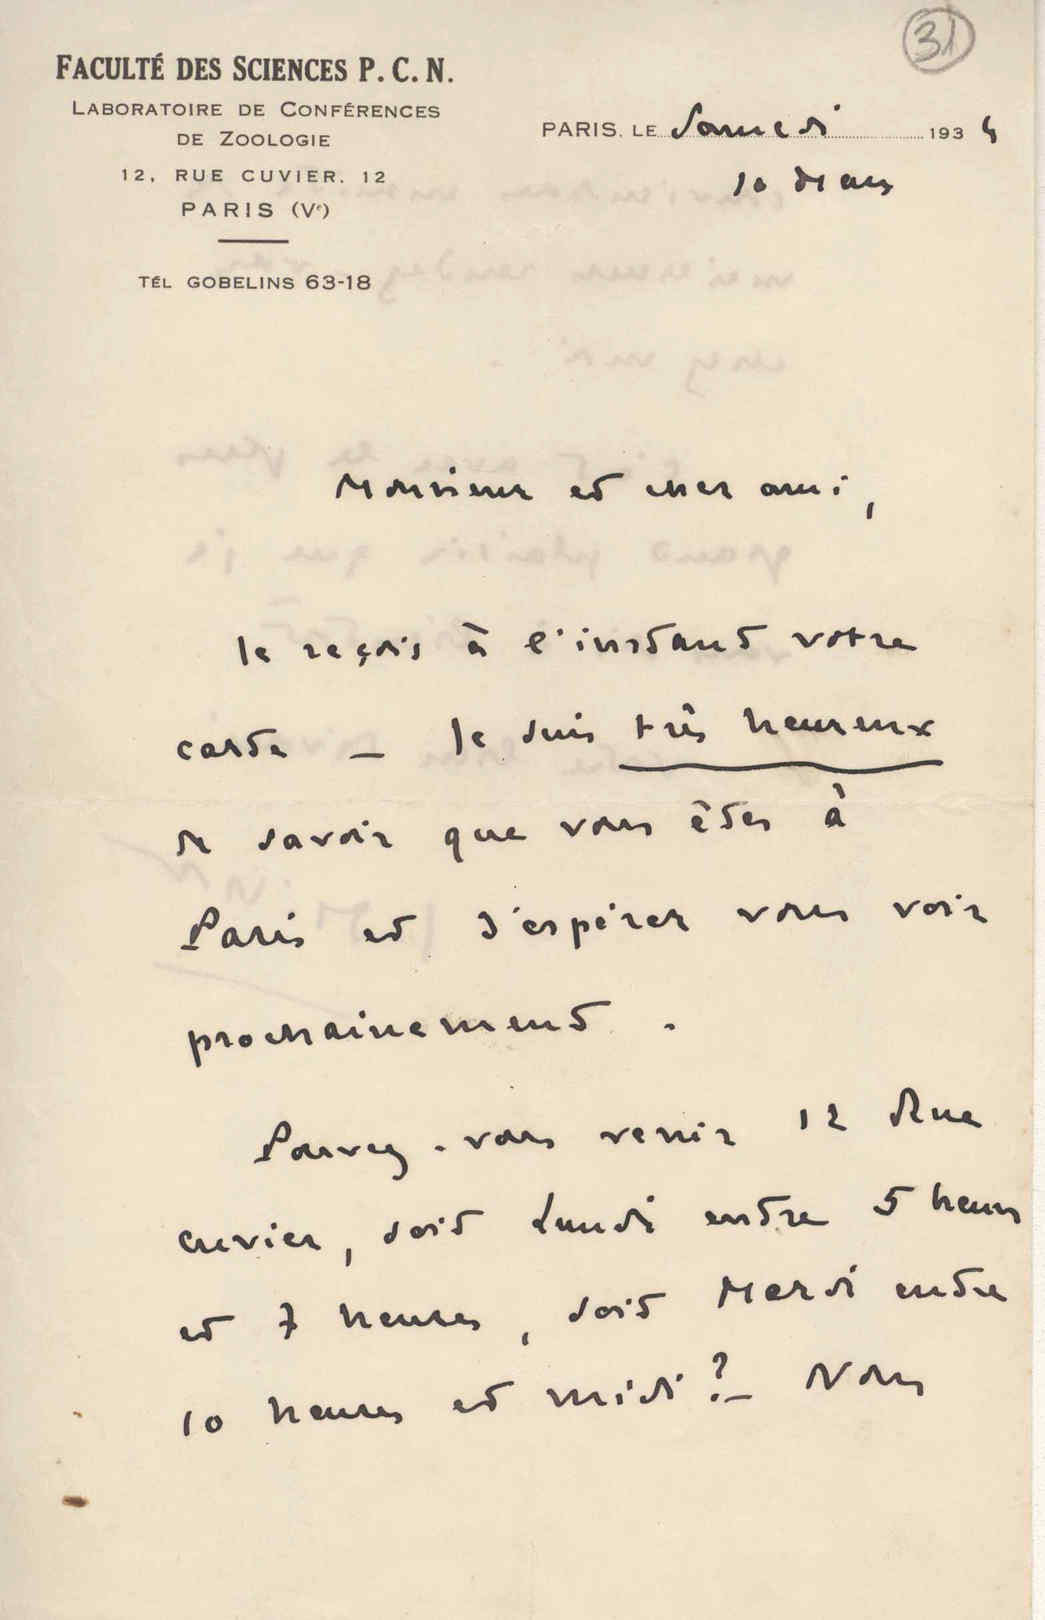 31
FACULTÉ DES SCIENCES P. C. N.
LABORATOIRE DE CONFÉRENCES
DE ZOOLOGIE
12, RUE CUVIER. 12
PARIS (Ve)
TÉL GOBELINS 63-18
PARIS. LE Samedi 1934
10 Mars
Monsieur et cher ami,
Je reçois à l'instant votre
carte — Je suis très heureux
de savoir que vous êtes à
Paris et d'espérer vous voir
prochainement.
Pouvez-vous venir 12 Rue
Cuvier, soit Lundi entre 5 heures
et 7 heures, soit Mardi entre
10 heures et midi ? — Nous